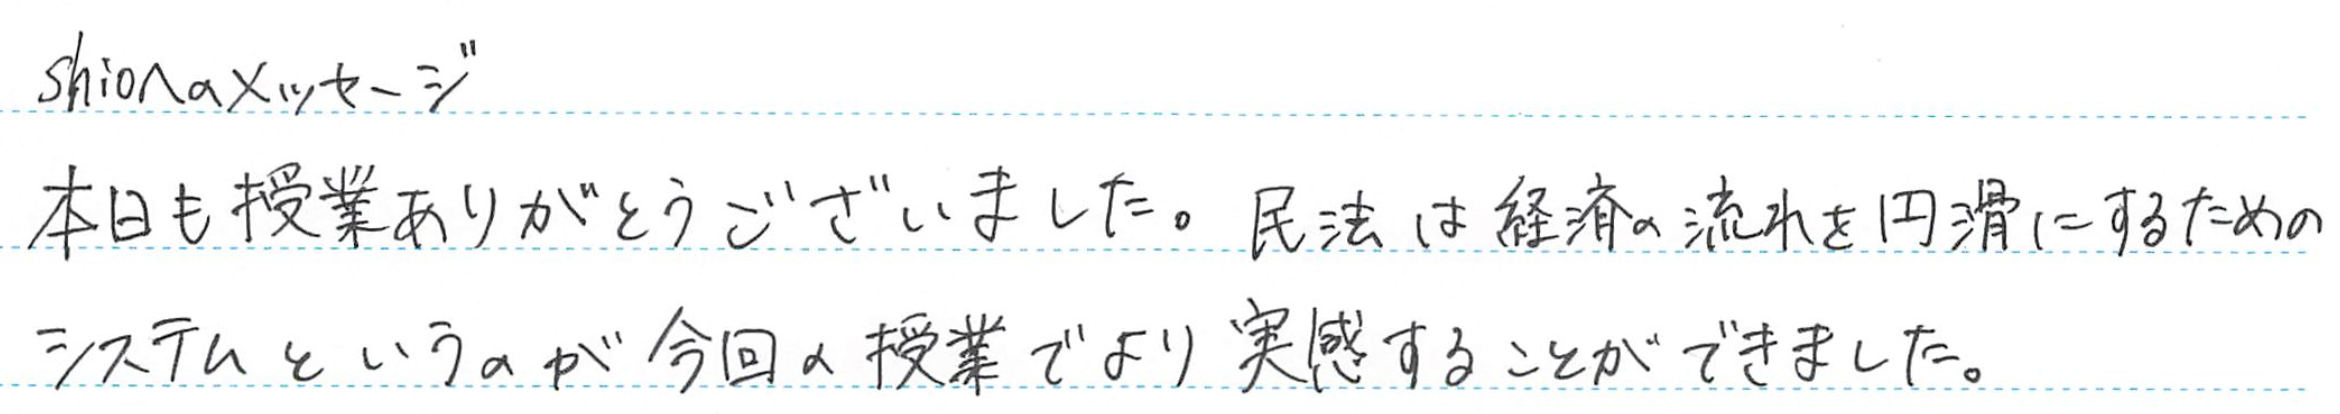 shioへのメッセージ
本日も授業ありがとうございました。民法は経済の流れを円滑にするための
システムというのが今回の授業でより実感することができました。